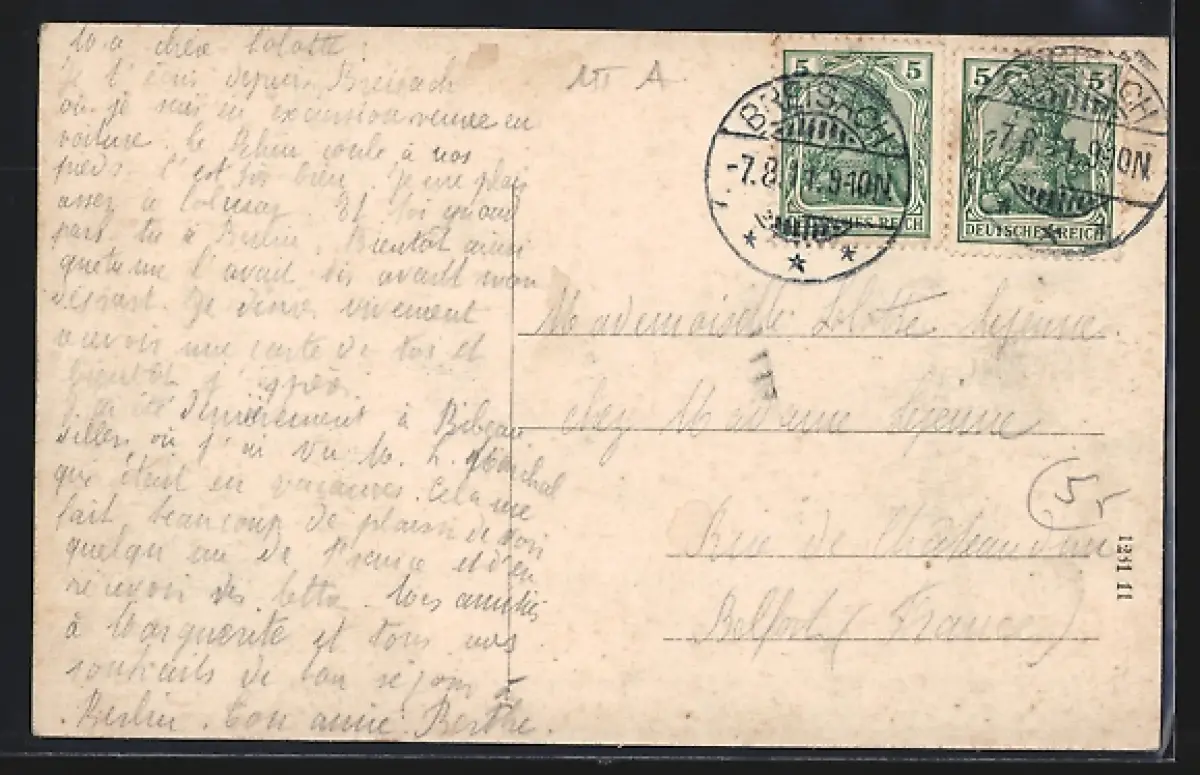 Ma chère Lolotte
Je t'écris depuis Breisach
où je suis en excursion venue en
voiture. Le Rhin coule à nos
pieds. C'est très bien. Je me plais
assez à Colmar. Et toi quand
pars-tu à Berlin. Bientôt ainsi
que tu me l'avait dis avant mon
départ. Je désire vivement
recevoir une carte de toi et
bientôt j'espère.
J'ai été dernièrement à
où j'ai vu M. L. Maréchal
qui était en vacances. Cela me
fait beaucoup de plaisir de voir
quelqu'un de France et d'en
recevoir des lettres. Mes amitiés
à Marguerite et tous mes
souhaits de bon séjour à
Berlin. Ton amie Berthe.
5 5
DEUTSCHES REICH
5 5
DEUTSCHES REICH
BREISACH
-7.8.11.9-10N.
BREISACH
-7.8.11.9-10N.
Mademoiselle Lolotte Lejeune
chez Madame Lejeune
Rue de Châteaudun
Belfort (France)
1231 11